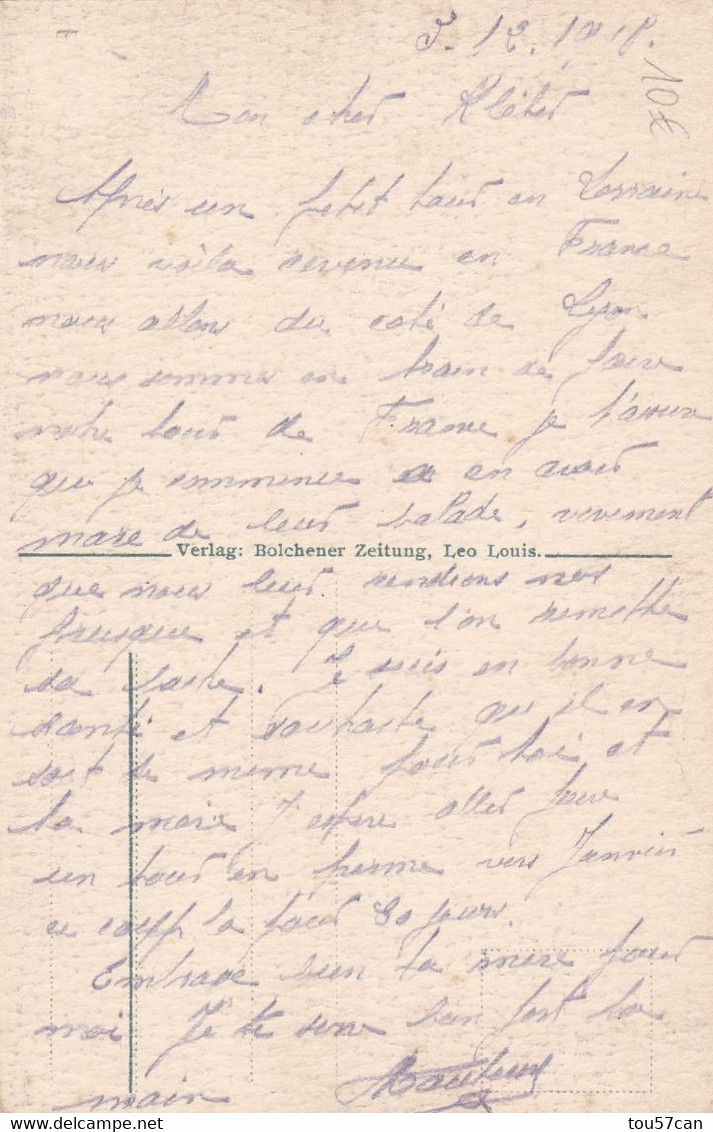 12. 1918.
10€
Mon cher
Après un petit tour en Lorraine
nous voila revenu en France
nous allons du coté de Lyon
nous sommes en train de faire
notre tour de France je t'avoue
que je commence a en avoir
mare de leur balade, vivement
Verlag: Bolchener Zeitung, Leo Louis.
que nous leur rendions nos
frusque et que l'on remette
sa . Je suis en bonne
santé et souhaite qu'il en
soit de meme pour toi et
ta mère J'espère aller faire
un tour en perme vers Janvier
ce coup la pour 20 jours.
Embrasse bien ta mère pour
moi Je te serre bien fort la
main
tou57can
www.delcampe.net